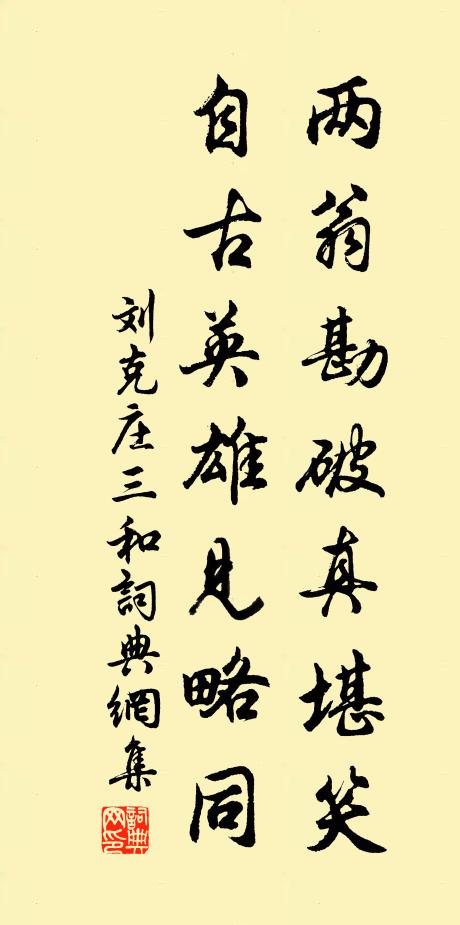 两翁勘破真堪笑
自古英雄見略同
刘克庄三和詞典網集
詞典
网印